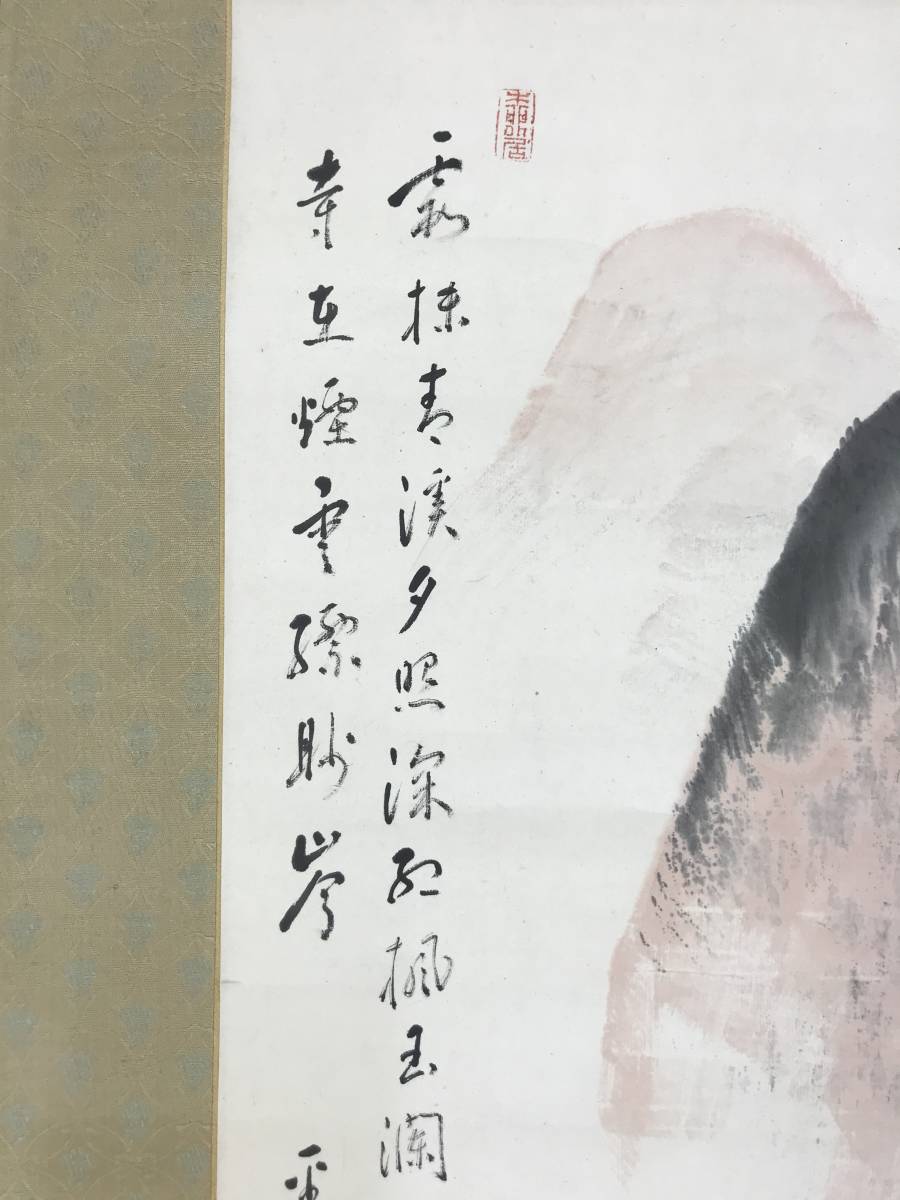 霜抹青溪夕照深紅楓玉瀾
寺在煙雲縹眇岑